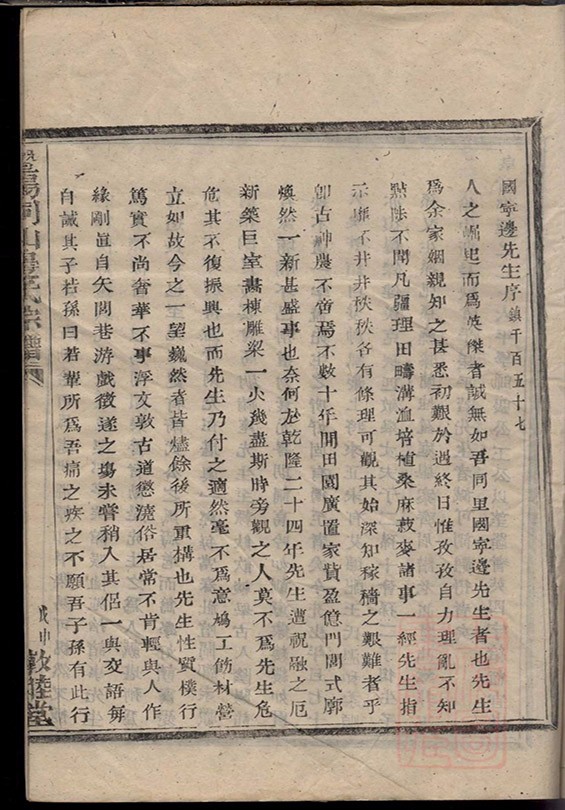 國寧邊先生序鎮千百五十七
人之崛起而爲英傑者誠無如吾同里國寧邊先生者也先生
爲余家姻親知之甚悉初艱於遇終日惟孜孜自力理亂不知
黜陟不聞凡疆理田疇溝洫培植桑麻菽麥諸事一經先生指
示雖不井井秩秩各有條理可觀其始深知稼穡之艱難者乎
卽古神農不啻焉不數十年開田園廣置家貲盈億門閭式廓
煥然一新甚盛事也奈何於乾隆二十四年先生遭祝融之厄
新築巨室畵棟雕梁一火幾盡斯時旁觀之人莫不爲先生危
危其不復振興也而先生乃付之適然毫不爲意鳩工飭材營
立如故今之一望巍然者皆燼餘後所重構也先生性質樸行
篤實不尚奢華不事浮文敦古道懲澆俗居常不肯輕與人作
緣剛直自矢閭巷游戲徵逐之塲未嘗稍入其侶一與交語每
自誡其子若孫曰若輩所爲吾痛之疾之不願吾子孫有此行
宗譜
戊申 敦睦堂